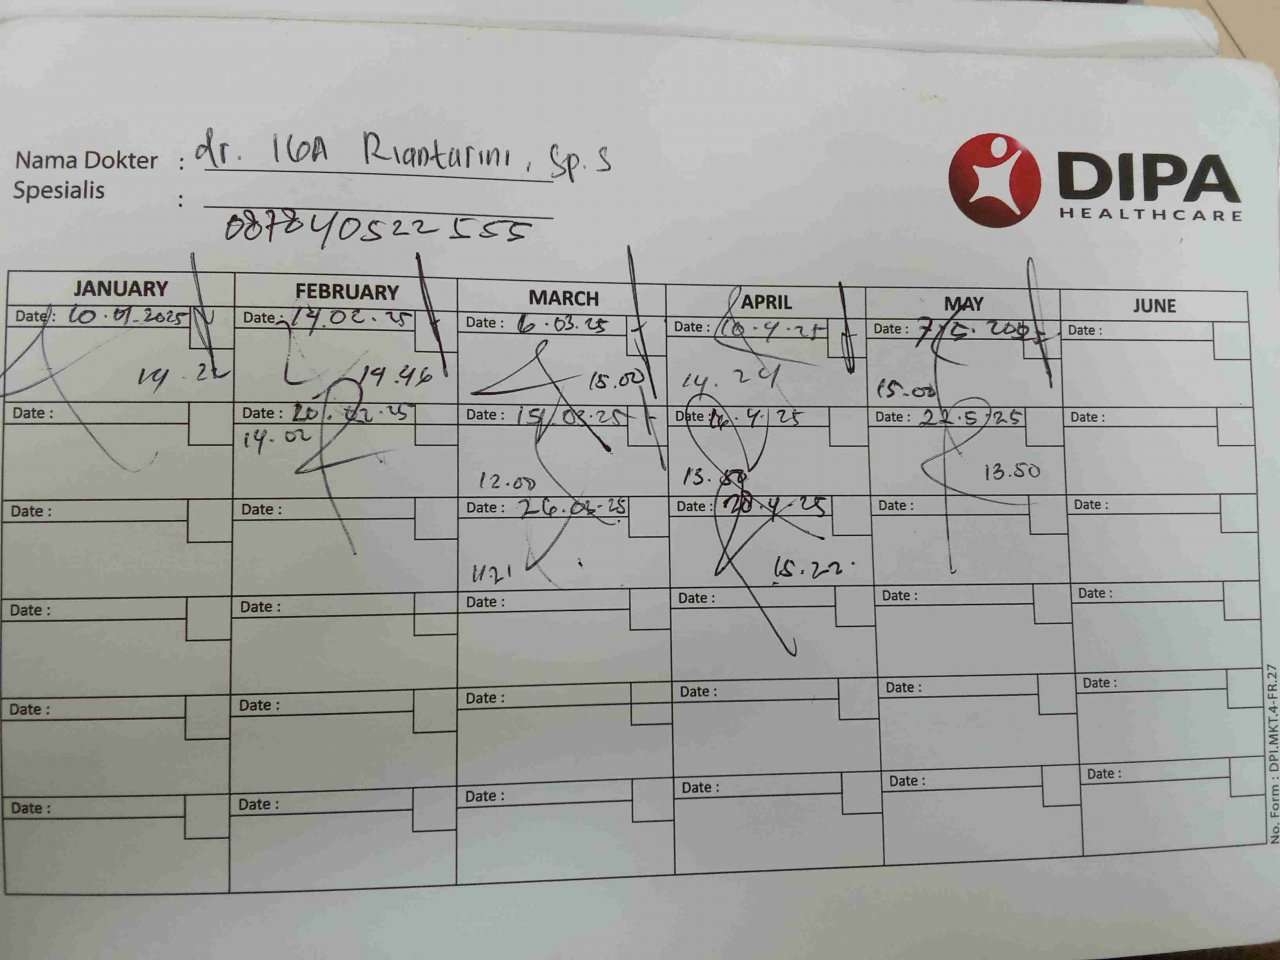 DIPA
HEALTHCARE
Nama Dokter : dr. IGA Riantarini, Sp.S
Spesialis :
087840522555
JANUARY FEBRUARY MARCH APRIL MAY JUNE
Date : 10.01.2025 Date : 14.02.25 Date : 6.03.25 Date : 10.4.25 Date : 7.5.2025 Date :
14.22 14.46 15.00 14.24 15.00
Date : Date : 20.02.25 Date : 15.03.25 Date : 16.4.25 Date : 22.5.25 Date :
14.02 12.00 13.50 13.50
Date : Date : Date : 26.03.25 Date : 28.4.25 Date : Date :
11.21 15.22
Date : Date : Date : Date : Date : Date :
Date : Date : Date : Date : Date : Date :
Date : Date : Date : Date : Date : Date :
No. Form : DPI.MKT.4-FR.27